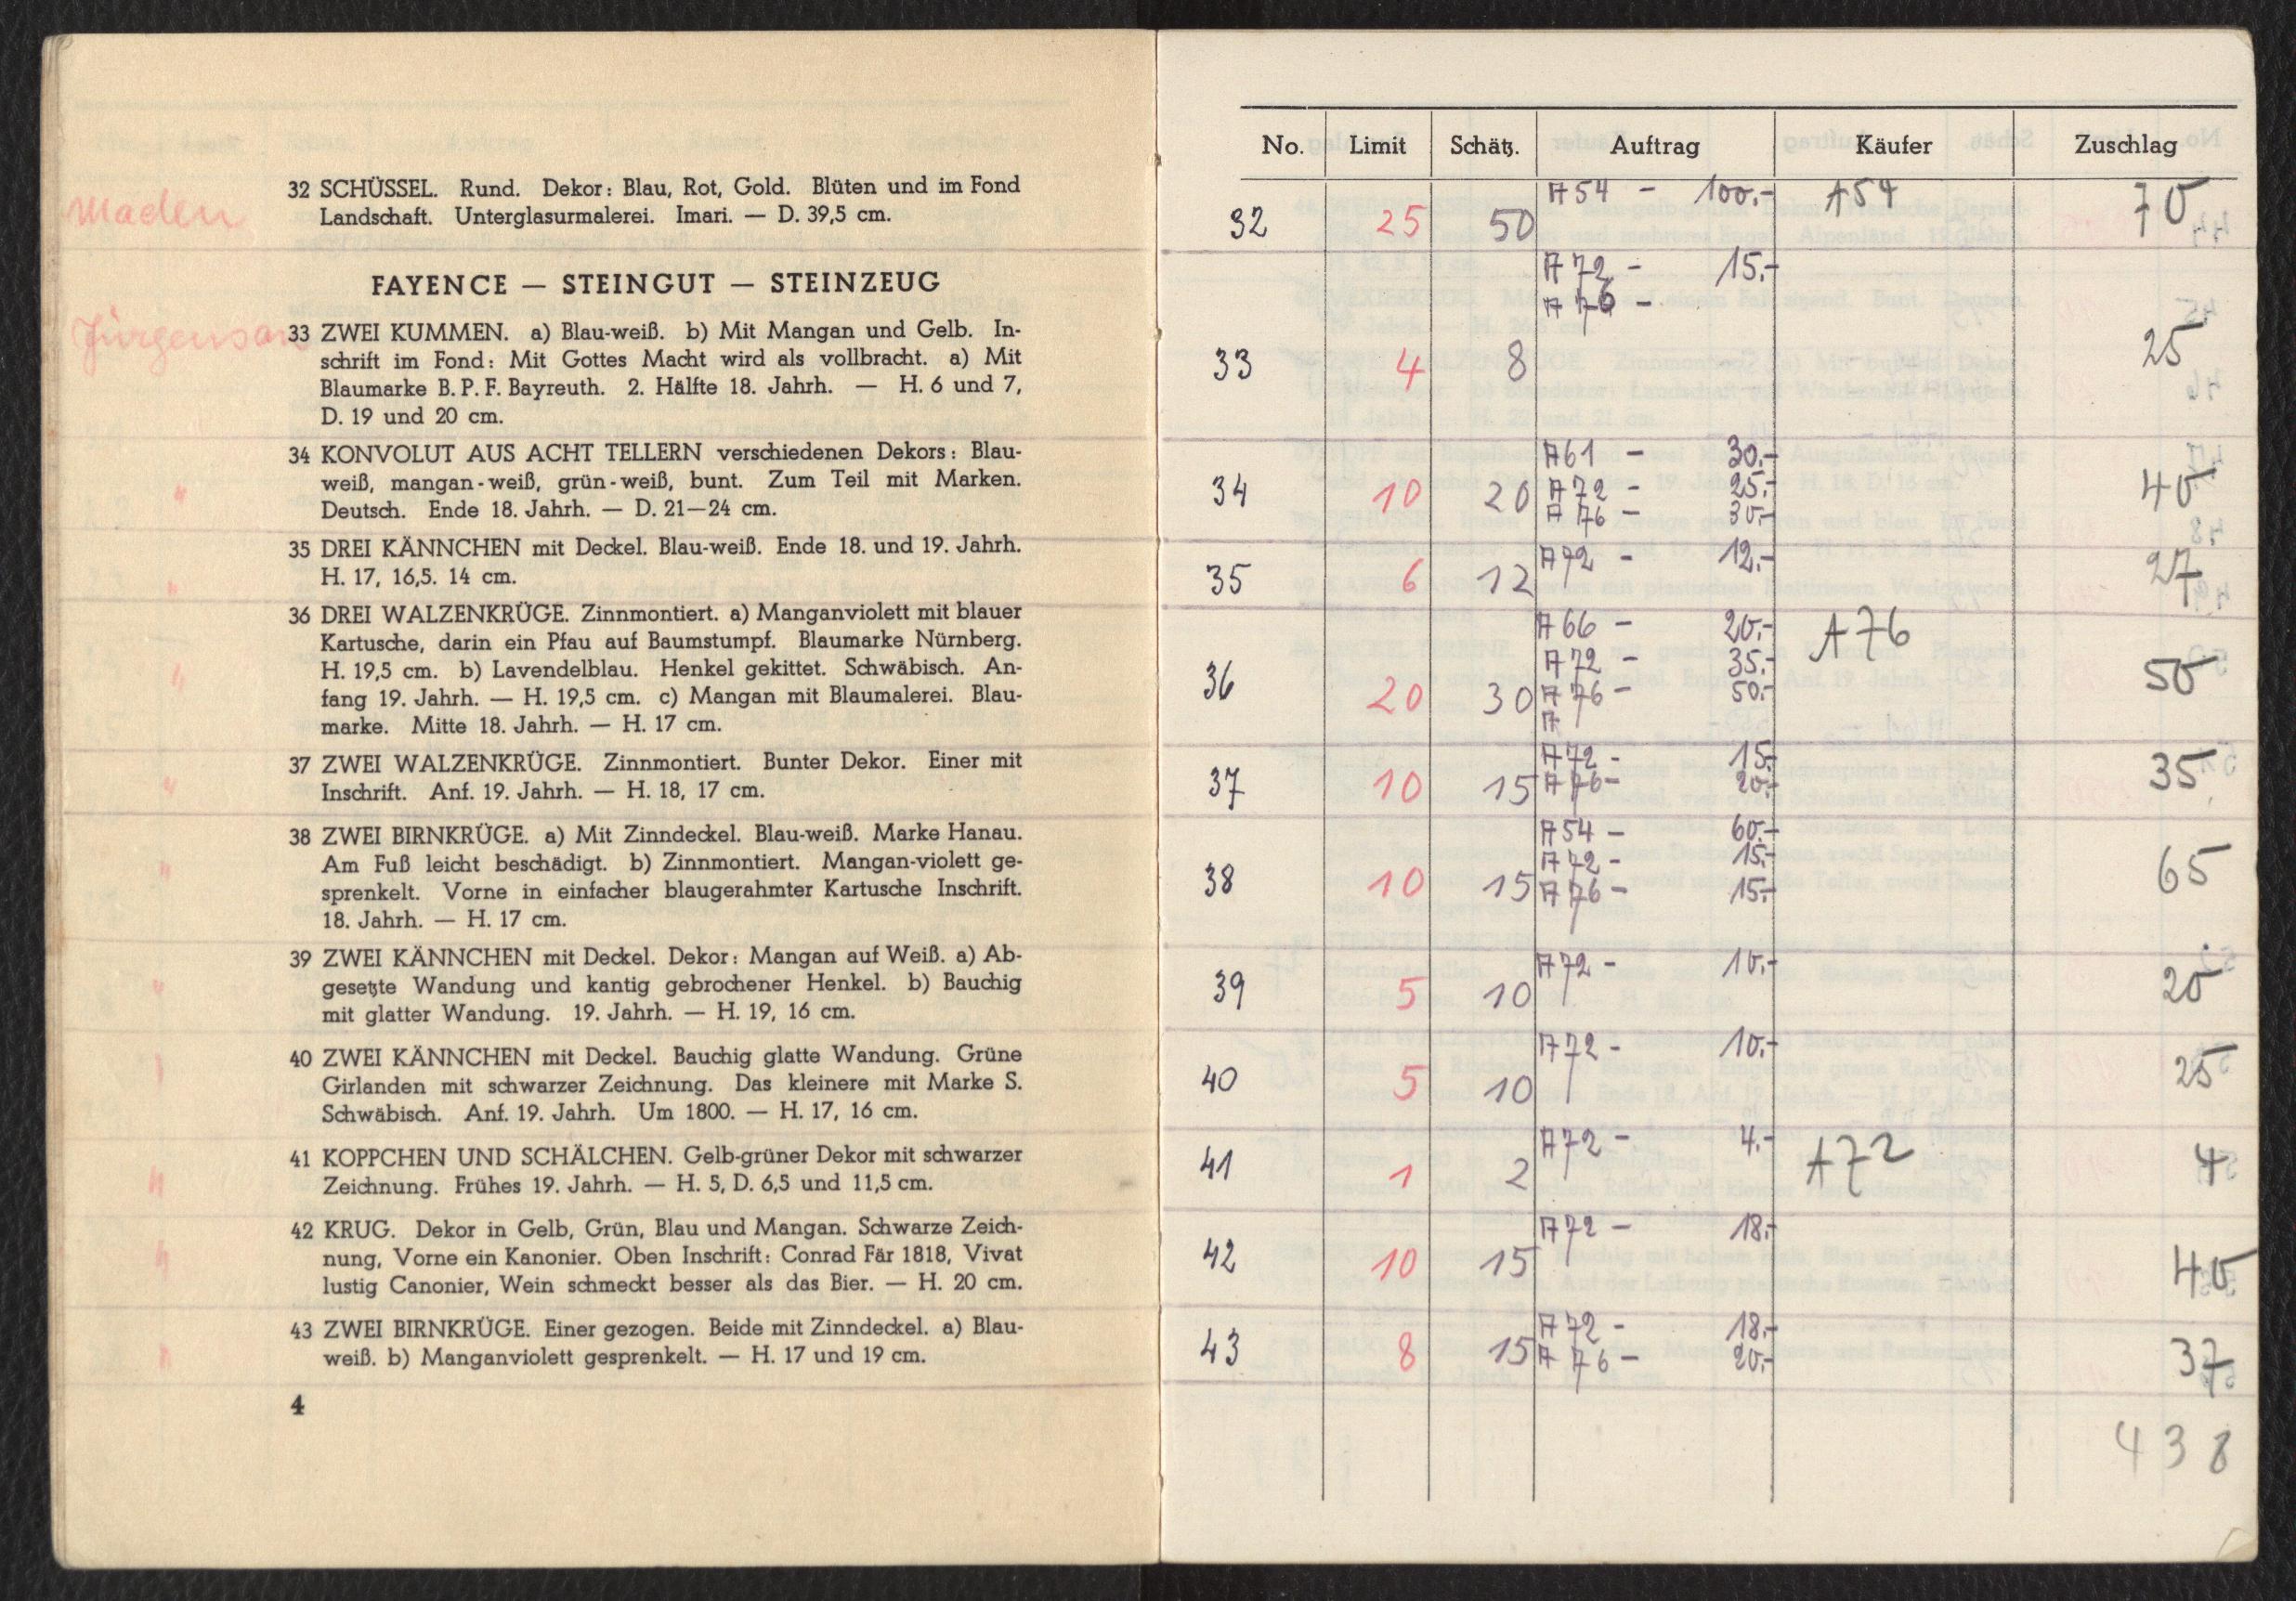 Maden
32 SCHÜSSEL. Rund. Dekor: Blau, Rot, Gold. Blüten und im Fond
Landschaft. Unterglasurmalerei. Imari. — D. 39,5 cm.
FAYENCE — STEINGUT — STEINZEUG
Jürgenson
33 ZWEI KUMMEN. a) Blau-weiß. b) Mit Mangan und Gelb. In-
schrift im Fond: Mit Gottes Macht wird als vollbracht. a) Mit
Blaumarke B. P. F. Bayreuth. 2. Hälfte 18. Jahrh. — H. 6 und 7,
D. 19 und 20 cm.
34 KONVOLUT AUS ACHT TELLERN verschiedenen Dekors: Blau-
weiß, mangan-weiß, grün-weiß, bunt. Zum Teil mit Marken.
" Deutsch. Ende 18. Jahrh. — D. 21—24 cm.
35 DREI KÄNNCHEN mit Deckel. Blau-weiß. Ende 18. und 19. Jahrh.
" H. 17, 16,5. 14 cm.
36 DREI WALZENKRÜGE. Zinnmontiert. a) Manganviolett mit blauer
Kartusche, darin ein Pfau auf Baumstumpf. Blaumarke Nürnberg.
" H. 19,5 cm. b) Lavendelblau. Henkel gekittet. Schwäbisch. An-
fang 19. Jahrh. — H. 19,5 cm. c) Mangan mit Blaumalerei. Blau-
marke. Mitte 18. Jahrh. — H. 17 cm.
37 ZWEI WALZENKRÜGE. Zinnmontiert. Bunter Dekor. Einer mit
" Inschrift. Anf. 19. Jahrh. — H. 18, 17 cm.
38 ZWEI BIRNKRÜGE. a) Mit Zinndeckel. Blau-weiß. Marke Hanau.
" Am Fuß leicht beschädigt. b) Zinnmontiert. Mangan-violett ge-
sprenkelt. Vorne in einfacher blaugerahmter Kartusche Inschrift.
18. Jahrh. — H. 17 cm.
39 ZWEI KÄNNCHEN mit Deckel. Dekor: Mangan auf Weiß. a) Ab-
" gesetzte Wandung und kantig gebrochener Henkel. b) Bauchig
mit glatter Wandung. 19. Jahrh. — H. 19, 16 cm.
40 ZWEI KÄNNCHEN mit Deckel. Bauchig glatte Wandung. Grüne
" Girlanden mit schwarzer Zeichnung. Das kleinere mit Marke S.
Schwäbisch. Anf. 19. Jahrh. Um 1800. — H. 17, 16 cm.
41 KOPPCHEN UND SCHÄLCHEN. Gelb-grüner Dekor mit schwarzer
" Zeichnung. Frühes 19. Jahrh. — H. 5, D. 6,5 und 11,5 cm.
42 KRUG. Dekor in Gelb, Grün, Blau und Mangan. Schwarze Zeich-
" nung, Vorne ein Kanonier. Oben Inschrift: Conrad Fär 1818, Vivat
lustig Canonier, Wein schmeckt besser als das Bier. — H. 20 cm.
43 ZWEI BIRNKRÜGE. Einer gezogen. Beide mit Zinndeckel. a) Blau-
" weiß. b) Manganviolett gesprenkelt. — H. 17 und 19 cm.
4
No. Limit Schätz. Auftrag Käufer Zuschlag
32 25 50 A 54 — 100.- A 54 70
A 72 - 15.-
A 76 -
33 4 8 25
A 61 - 30.-
34 10 20 A 72 - 25.- 40
A 76 - 30.-
35 6 12 A 72 - 12.- 27
A 66 - 20.- A 76
A 72 - 35.-
36 20 30 A 76 - 50.- 50
A
A 72 - 15.-
37 10 15 A 76 - 20.- 35
A 54 - 60.-
A 72 - 15.-
38 10 15 A 76 - 15.- 65
A 72 - 10.-
39 5 10 20
A 72 - 10.-
40 5 10 25
A 72 - 4.-
41 1 2 A 72 4
A 72 - 18.-
42 10 15 40
A 72 - 18.-
43 8 15 A 76 - 20.- 37
438